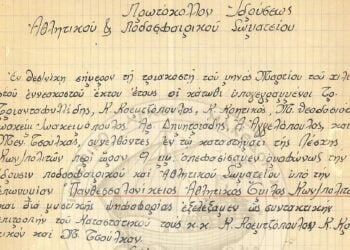 Πρωτόκολλον Ιδρύσεως
Αθλητικού & Ποδοσφαιρικού Σωματείου
Εν Θεσ/νίκη σήμερον τη τριακοστή του μηνός Μαρτίου του χιλ
του εννεακοστού έκτου έτους οι κάτωθι υπογεγραμμένοι Τρ.
Τριανταφυλλίδης, Κ. Κουκτζόπουλος, Κ. Κρητικός, Μ. Θεοδοσίου
Ιωακειμόπουλος Αρ. Δημητριάδης, Α. Αγγελόπουλος, και
Μεν. Τσούλκας, συνελθόντες εν τω καταστήματι της Λέσχης
Κων/πολιτών περί ώραν 9 μ.μ. απεφασίσαμεν ομοφώνως την
ίδρυσιν ποδοσφαιρικού και Αθλητικού Σωματείου υπό την
επωνυμίαν Πανθεσσαλονίκειος Αθλητικός Όμιλος Κων/πολιτ
και δια μυστικής ψηφοφορίας εξελέξαμεν ως συντακτικήν
επιτροπήν του Καταστατικού τους κ.κ. Κ. Κουκτζόπουλον Κ. Κ
τικόν και Μ. Τσούλκαν.